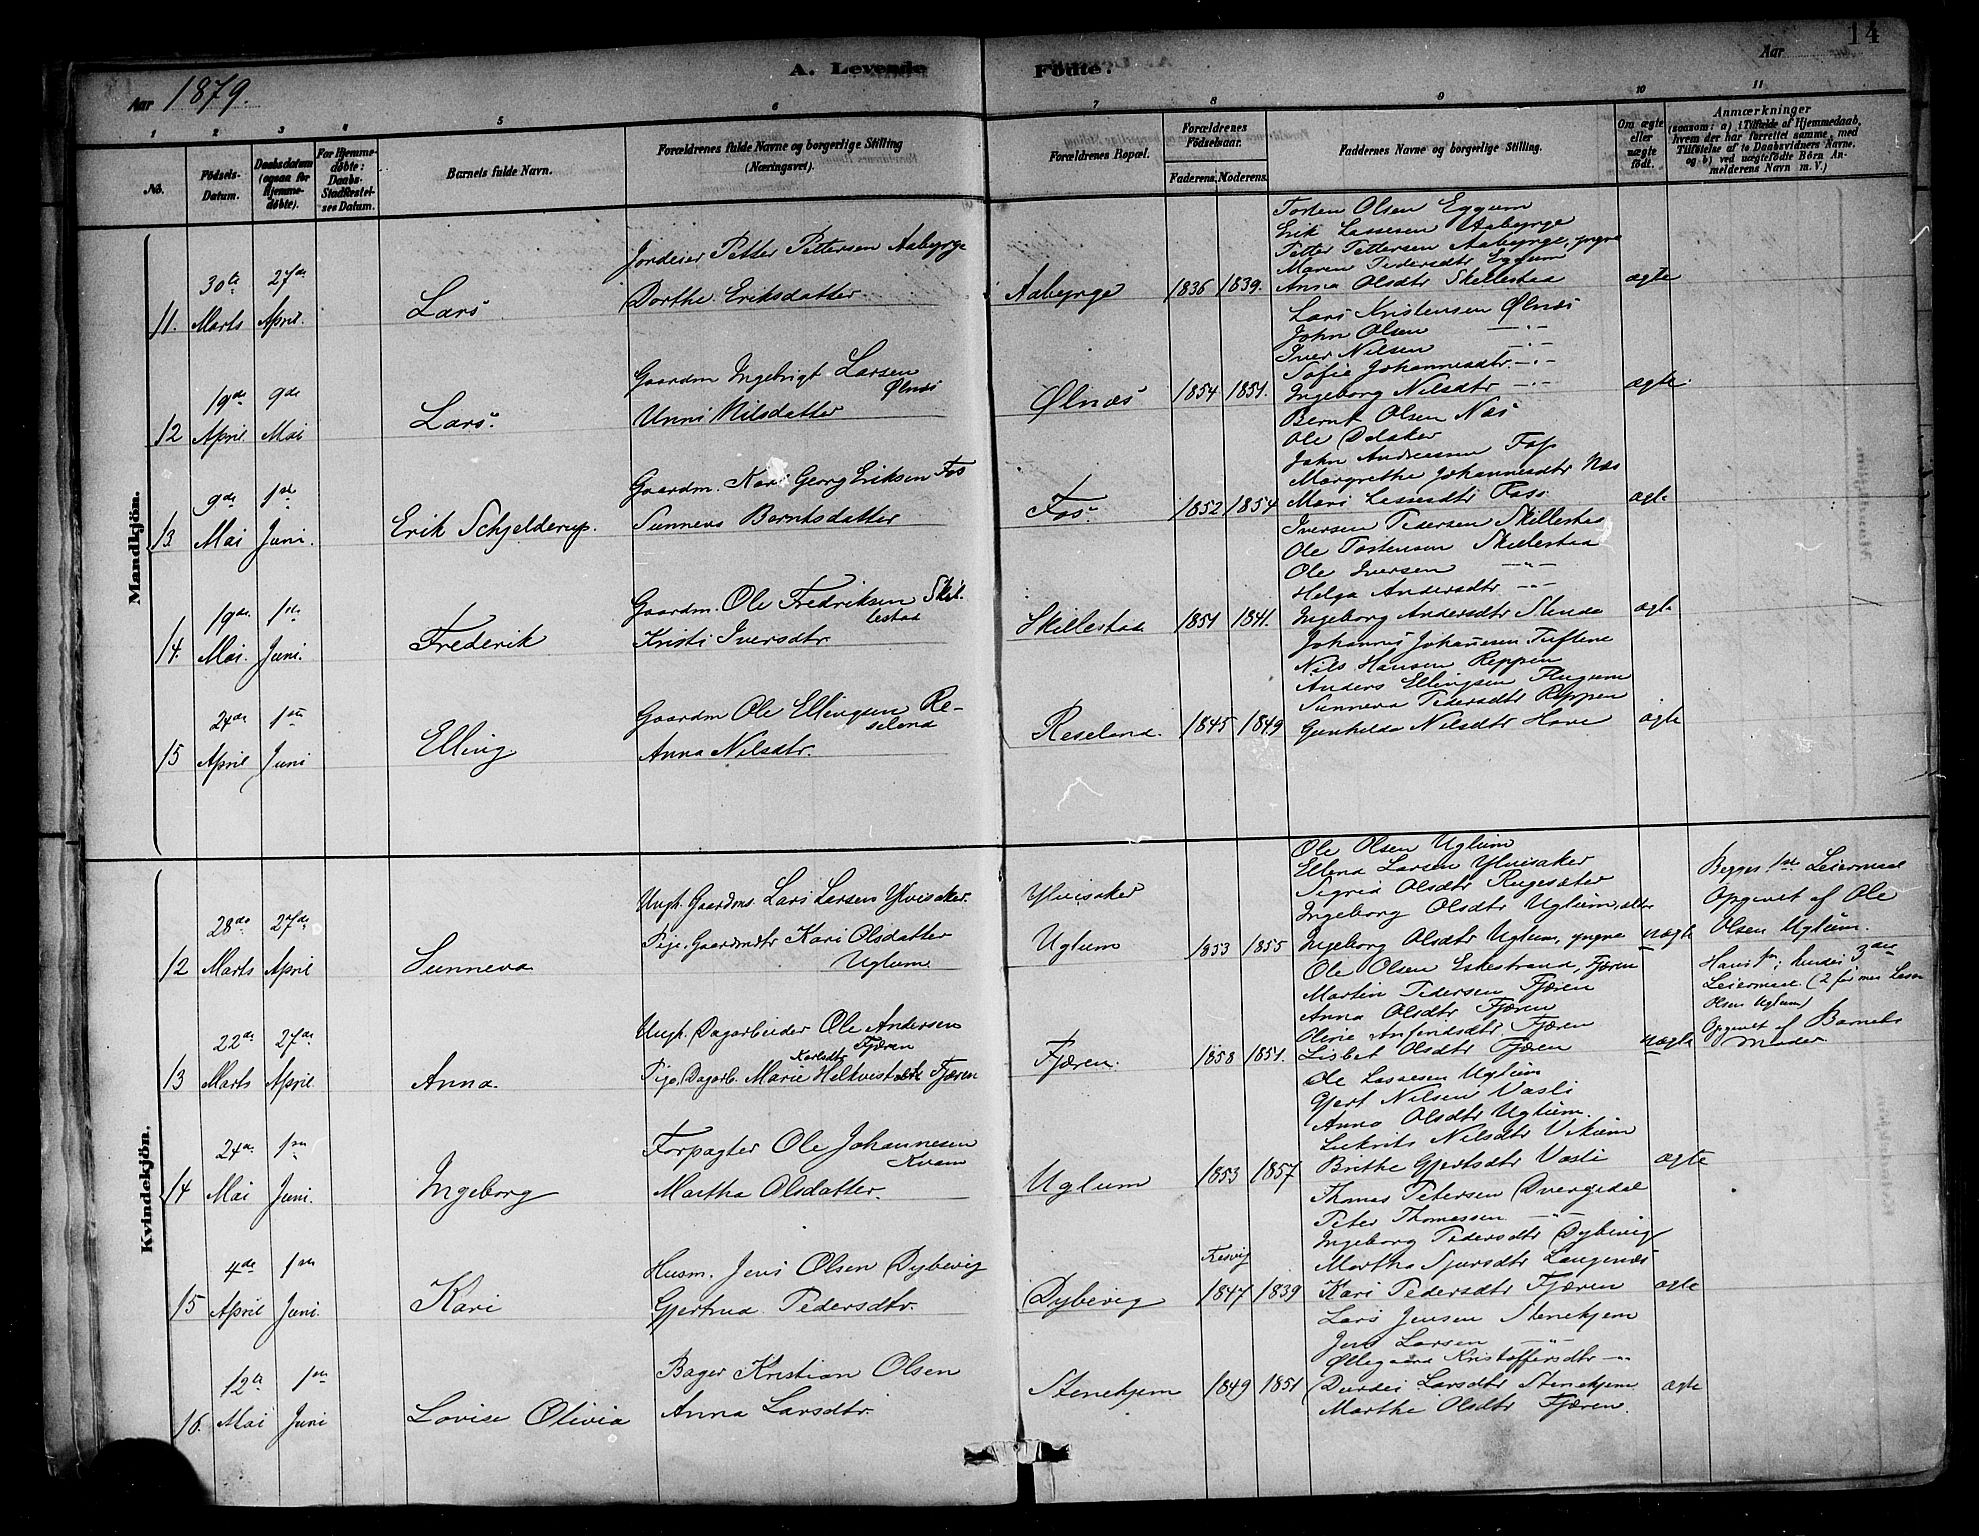 14
Aar 1879.
A. Levende Födte.
Aar
1 2 3 4 5 6 7 8 9 10 11
No.
Födsels-Datum.
Daabsdatum (ogsaa for Hjemmedøbte).
For Hjemmedöbte: Daabs-Stadfæstelses Datum.
Barnets fulde Navn.
Forældrenes fulde Navne og borgerlige Stilling (Næringsvei).
Forældrenes Bopæl.
Forældrenes Födselsaar.
Faderens. Moderens.
Faddernes Navne og borgerlige Stilling.
Om ægte eller uægte födt.
Anmærkninger
(saasom: a) i Tilfælde af Hjemmedaab, hvem der har forrettet samme, med Tilföielse af to Daabsvidners Navne, og b) ved uægtefödte Börn Anmelderens Navn m. V.)
Mandkjön.
11. 30te Marts 27de April. Lars
Jordeier Petter Pettersen Aabyrge
Dorthe Eriksdatter
Aabyrge 1836 1839.
Tosten Olsen Eggum
Erik Lassesen Aabyrge
Petter Pettersen Aabyrge, yngre
Maren Pedersdtr Eggum
Anna Olsdtr Skillestad
ægte
12 19de April 9de Mai Lars.
Gaardm Ingebrigt Larsen
Ølnæs
Unni Nilsdatter
Ølnæs 1854 1851.
Lars Kristensen Ølnæs
John Olsen —"—
Iver Nilsen —"—
Sofie Johannesdtr —"—
Ingeborg Nilsdtr —"—
ægte.
13 9de Mai 1ste Juni. Erik Schjelderup.
Gaardm. Karl Georg Eriksen Fos
Sunneva Berntsdatter
Fos. 1852 1854
Bernt Olsen Næs
Ole Delaker
John Andreasen Fos
Margrethe Johannesdtr Næs
Mari Lassesdtr
ægte
14. 19de Mai. 1ste Juni. Frederik
Gaardm. Ole Fredriksen Skil-
lestad
Kristi Iversdtr.
Skillestad 1851 1841.
Iversen Pedersen Skillestad
Ole Tostensen Skillestad
Ole Iversen —"—
Helga Andersdtr —"—
Ingeborg Andersdtr
ægte
15 24de April 1ste Juni Elling
Gaardm Ole Ellingsen Re-
seland
Anna Nilsdtr.
Reseland. 1845 1849
Johannes Johannesen Tuftene
Nils Hansen Reppen
Anders Ellingsen Flugum
Sunneva Pedersdtr Reppen
Gunhilda Nilsdtr Hove
ægte
Kvindekjön.
12 28de Marts 27de April Sunneva
Ungk. Gaardms. Lars Larsen Ylvisaker.
Pige, Gaardmdtr Kari Olsdatter
Uglum.
Ylvisaker
Uglum 1853 1855
Ole Olsen Uglum
Ellend Larsen Ylvisaker
Sigrid Olsdtr Rugesæter
Ingeborg Olsdtr Uglum, eldre
Ingeborg Olsdtr Uglum, yngre
uægte
Begges 1ste Leiermaal
Opgivet af Ole
Olsen Uglum.
Hans 1ste; hendes 3die
Leiermaal (2 før med Lasse
Olsen Uglum)
13 22de Marts 27de April. Anna.
Ungk. Dagarbeider Ole Andersen
Fjæren
Pige, Dagarb. Marie Karlsdtr Fjæren
Fjæren. 1858 1851.
Ole Olsen Eskestrand, Fjæren
Martin Pedersen Fjæren
Anna Olsdtr Fjæren
Oline Anfindsdtr Fjæren
Lisbet Olsdtr Fjæren
uægte
Opgivet af Barnets
Moder.
14 24de Mai 1ste Juni. Ingeborg
Forpagter Ole Johannesen
Kvam
Martha Olsdatter.
Uglum 1853 1857
Ole Lassesen Uglum
Gjert Nilsen Vasli
Anna Olsdtr Uglum.
Nilsdtr Vikum
Brithe Gjertsdtr Vasli
ægte
15 4de April 1ste Juni. Kari
Husm. Jens Olsen Dybevig
Gjertrud Pedersdtr.
Fresvig
Dybevig 1847 1839
Thomas Petersen Dvergedal
Peter Thomassen —"—
Ingeborg Pedersdtr Dybevig
Martha Sjursdtr Langenæs
Kari Pedersdtr Fjæren
ægte
16. 12te Mai 1ste Juni Lovise Olivia
Bager Kristian Olsen
Anna Larsdtr.
Stenehjem 1849 1851
Lars Jensen Stenehjem
Jens Larsen —"—
Øllegaard Kristoffersdtr —"—
Durdei Larsdtr Stenehjem
Marthe Olsdtr Fjæren.
ægte